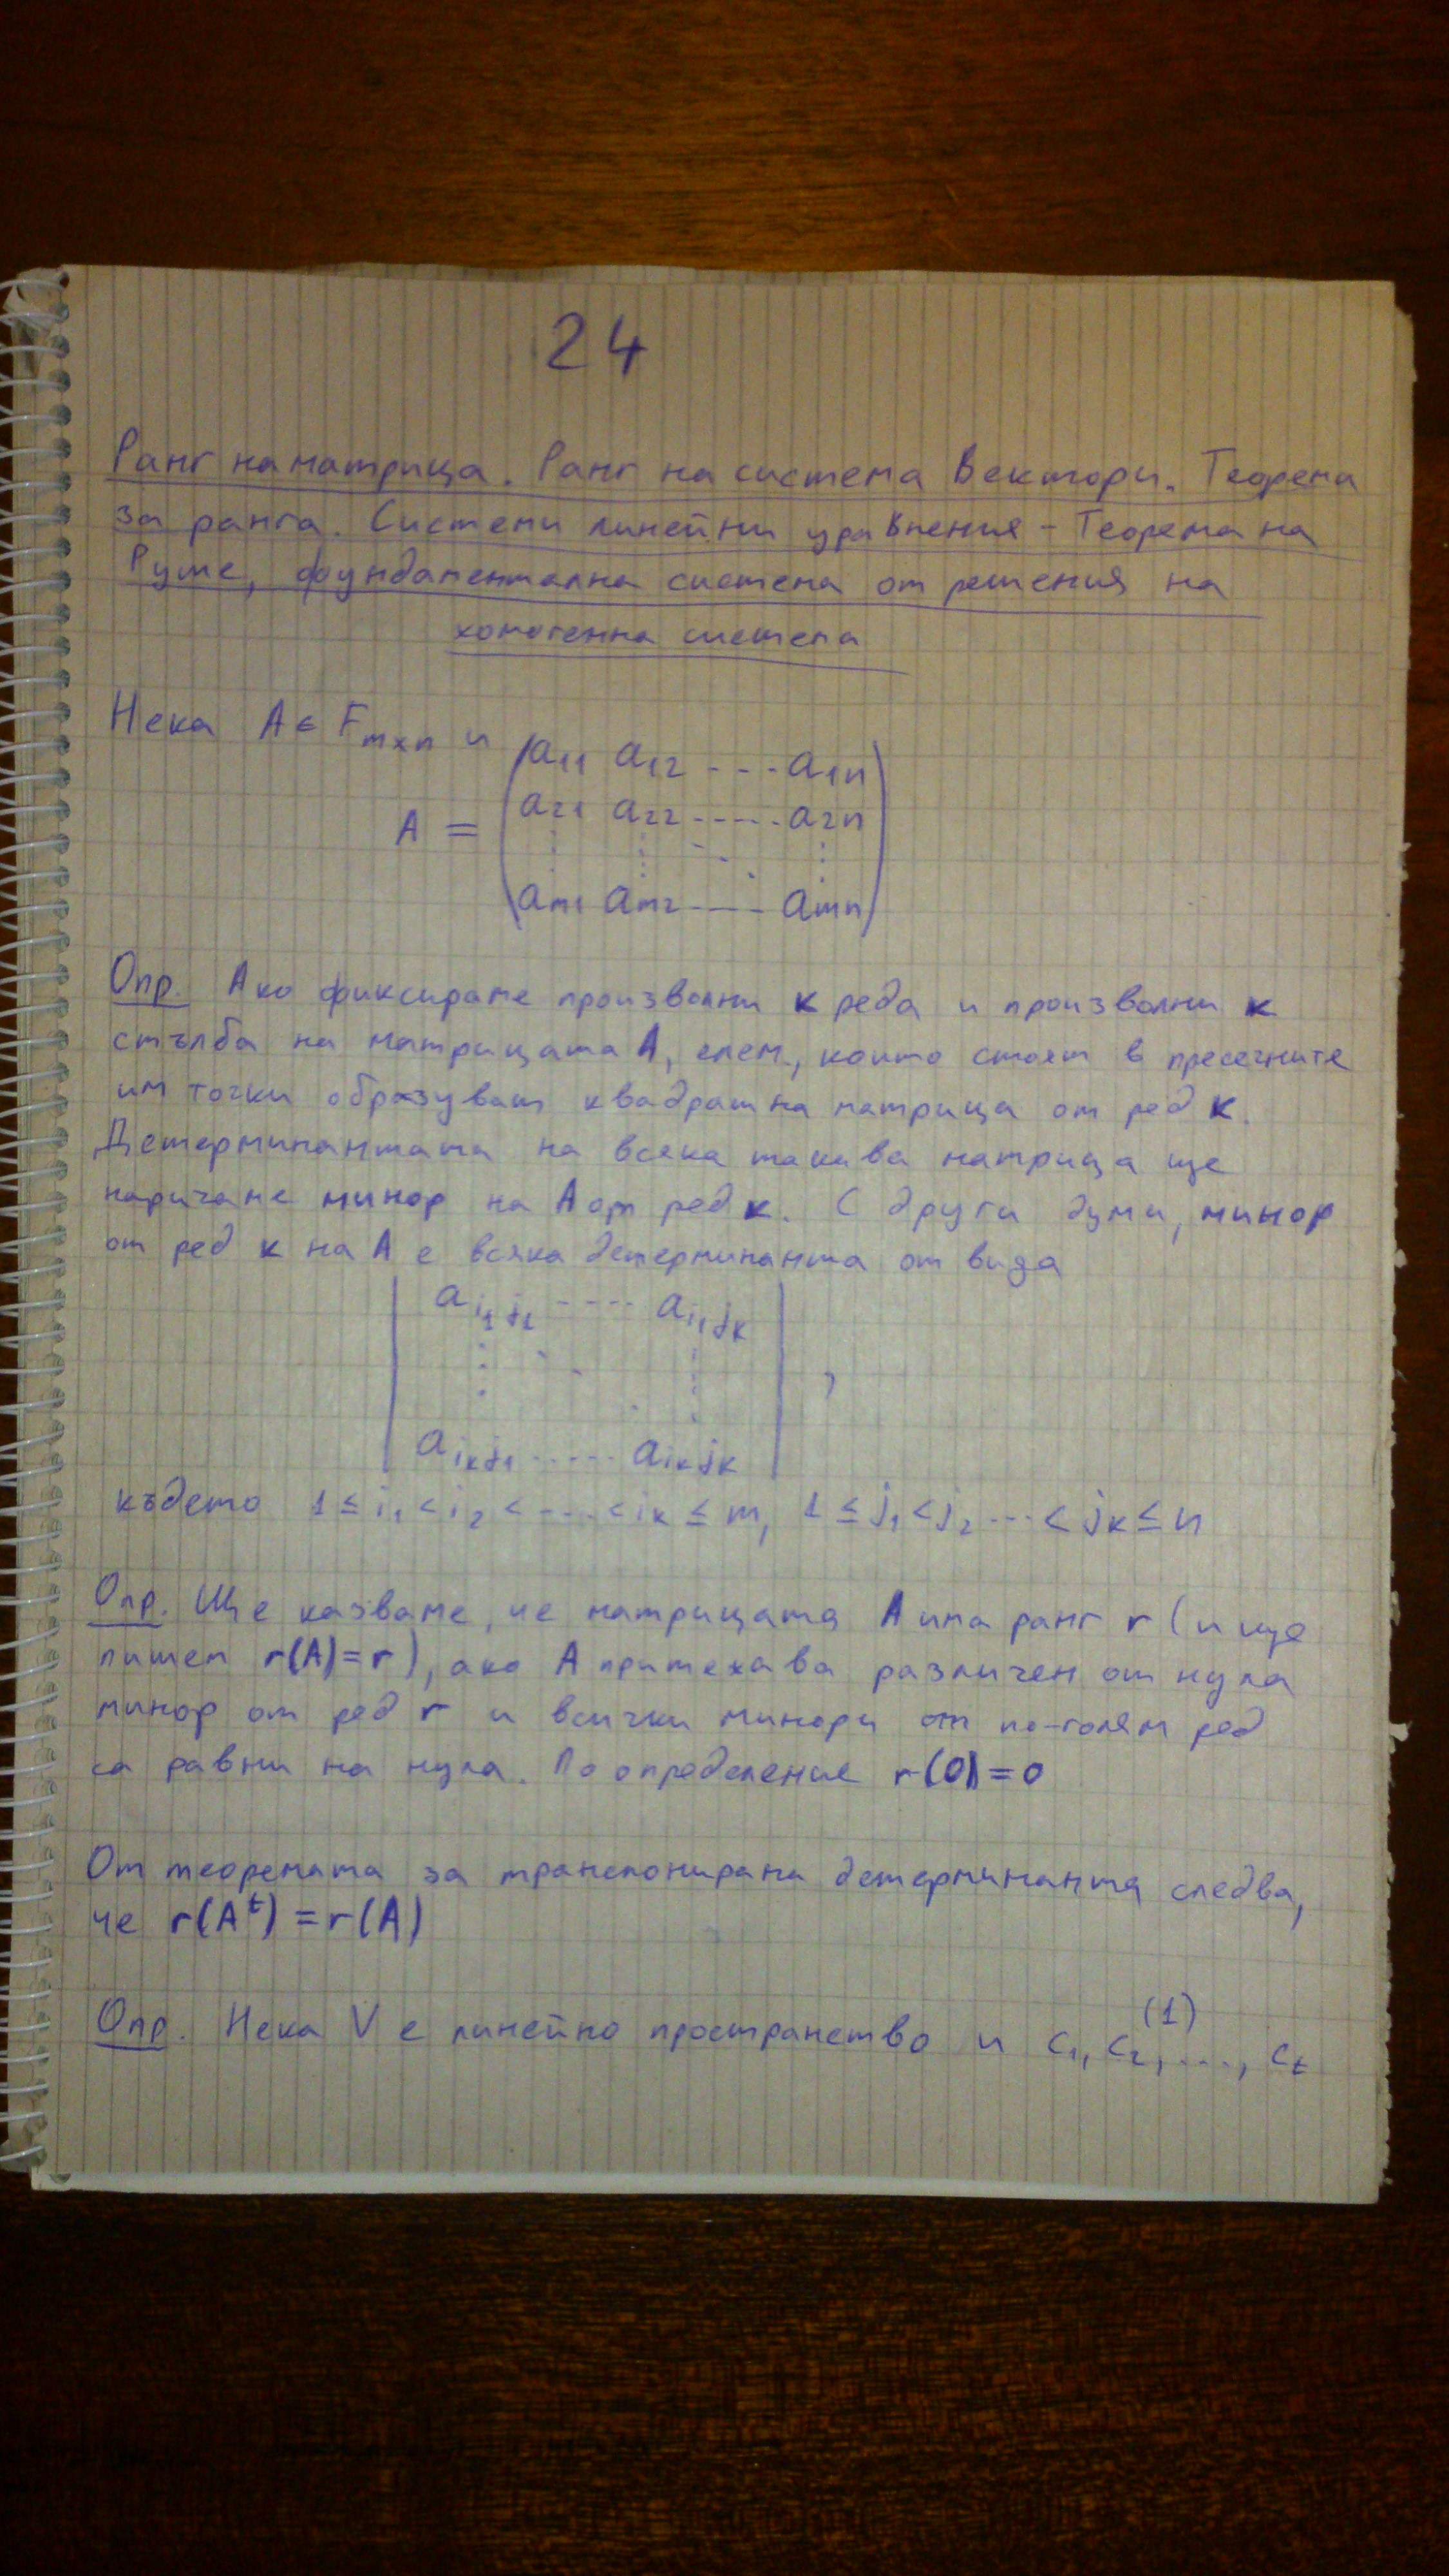 24
Ранг на матрица. Ранг на система Вектори. Теорема
за ранга. Системи линейни уравнения - Теорема на
Руше, фундаментална система от решения на
хомогенна система
Нека A ∈ F_{m×n} и
A = \begin{pmatrix} a_{11} & a_{12} & \cdots & a_{1n} \\ a_{21} & a_{22} & \cdots & a_{2n} \\ \vdots & \vdots & \ddots & \vdots \\ a_{m1} & a_{m2} & \cdots & a_{mn} \end{pmatrix}
Опр. Ако фиксираме произволни k реда и произволни k
стълба на матрицата A, елем., които стоят в пресечните
им точки образуват квадратна матрица от ред k.
Детерминантата на всяка такава матрица ще
наричаме минор на A от ред k. С други думи, минор
от ред k на A е всяка детерминанта от вида
\begin{vmatrix} a_{i_1 j_1} & \cdots & a_{i_1 j_k} \\ \vdots & \ddots & \vdots \\ a_{i_k j_1} & \cdots & a_{i_k j_k} \end{vmatrix},
където 1 ≤ i_1 < i_2 < ... < i_k ≤ m, 1 ≤ j_1 < j_2 ... < j_k ≤ n
Опр. Ще казваме, че матрицата A има ранг r (и ще
пишем r(A)=r), ако A притежава различен от нула
минор от ред r и всички минори от по-голям ред
са равни на нула. По определение r(0)=0
От теоремата за транспонирана детерминанта следва,
че r(A^t) = r(A)
(1)
Опр. Нека V е линейно пространство и c_1, c_2, ..., c_t